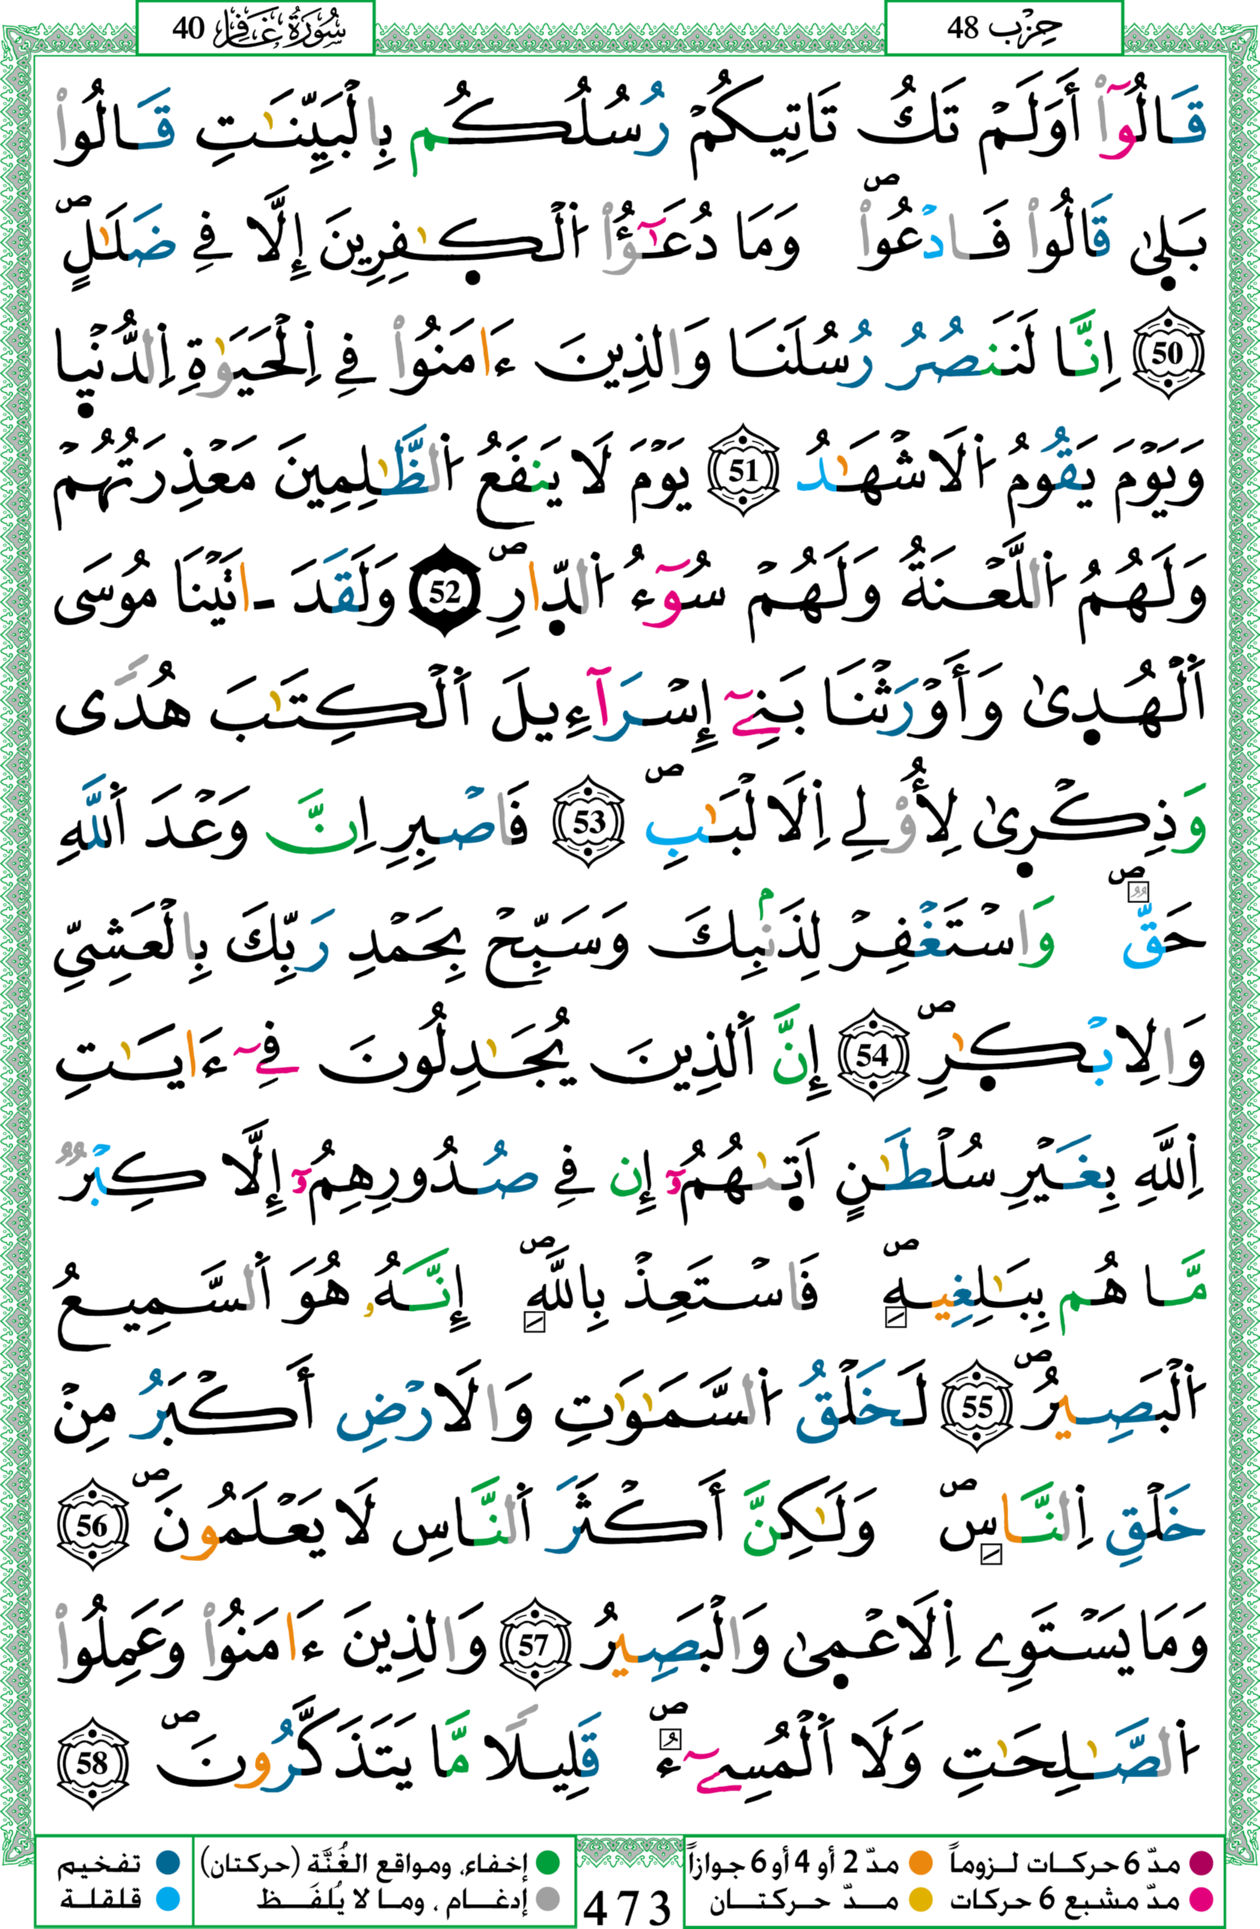 حِزْب 48
سُورَةُ غَافِر 40
قَالُوٓاْ أَوَلَمْ تَكُ تَاتِيكُمْ رُسُلُكُم بِالْبَيِّنَٰتِ قَالُواْ
بَلٜىٰ قَالُواْ فَادْعُواْۖ وَمَا دُعَٰٓؤُاْ اُ۬لْكٰٜفِرِينَ إِلَّا فِے ضَلَٰلٍۖ
50 اِنَّا لَنَنصُرُ رُسُلَنَا وَالذِينَ ءَامَنُواْ فِے اِ۬لْحَيَوٰةِ اِ۬لدُّنْيٜا
وَيَوْمَ يَقُومُ اُ۬لَاشْهَٰدُ 51 يَوْمَ لَا يَنفَعُ اُ۬لظَّٰلِمِينَ مَعْذِرَتُهُمْ
وَلَهُمُ اُ۬للَّعْنَةُ وَلَهُمْ سُوٓءُ اُ۬لدّٜارِۖ 52 وَلَقَدَ اٰتَيْنَا مُوسَى
اَ۬لْهُدٜىٰ وَأَوْرَثْنَا بَنِےٓ إِسْرَآءِيلَ اَ۬لْكِتَٰبَ هُدًى
وَذِكْرٜىٰ لِأُوْلِے اِ۬لَالْبَٰبِۖ 53 فَاصْبِرِ اِنَّ وَعْدَ اَ۬للَّهِ
حَقّٞۖ وَاسْتَغْفِرْ لِذَنۢبِكَ وَسَبِّحْ بِحَمْدِ رَبِّكَ بِالْعَشِيِّ
وَالِابْكٰٜرِۖ 54 إِنَّ اَ۬لذِينَ يُجَٰدِلُونَ فِےٓ ءَايَٰتِ
اِ۬للَّهِ بِغَيْرِ سُلْطَٰنٍ اَتٜىٰهُمُۥٓ إِن فِے صُدُورِهِمُۥٓ إِلَّا كِبْرٞ
مَّا هُم بِبَٰلِغِيهِۖ فَاسْتَعِذْ بِاللَّهِۖ إِنَّهُۥ هُوَ اَ۬لسَّمِيعُ
اُ۬لْبَصِيرُۖ 55 لَخَلْقُ اُ۬لسَّمَٰوَٰتِ وَالَارْضِ أَكْبَرُ مِنْ
خَلْقِ اِ۬لنَّاسِۖ وَلَٰكِنَّ أَكْثَرَ اَ۬لنَّاسِ لَا يَعْلَمُونَۖ 56
وَمَا يَسْتَوِے اِ۬لَاعْمٜىٰ وَالْبَصِيرُ 57 وَالذِينَ ءَامَنُواْ وَعَمِلُواْ
اُ۬لصَّٰلِحَٰتِ وَلَا اَ۬لْمُسِےٓءُۖ قَلِيلًا مَّا يَتَذَكَّرُونَۖ 58
مدّ 6 حركات لـزوماً مدّ 2 أو 4 أو 6 جوازاً إخفاء، ومواقع الغُنَّة (حركتان) تفخيم
مدّ مشبع 6 حركات مـدّ حـركتـان إدغـام ، ومـا لا يُلفَـظ قلقلة
473